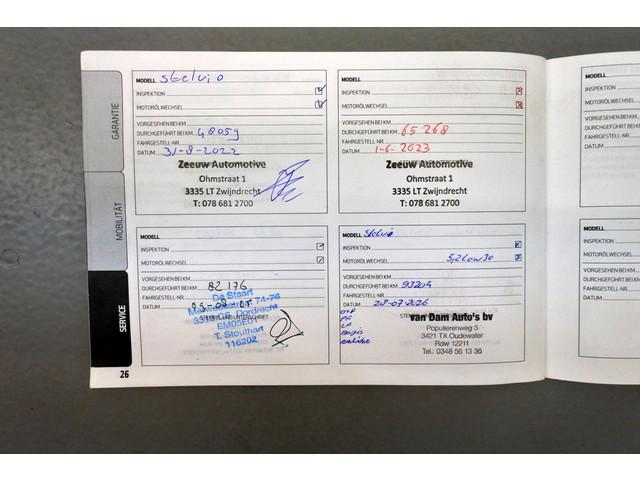 GARANTIE
MOBILITÄT
SERVICE
26
MODELL Stelvio
INSPEKTION
MOTORÖLWECHSEL
VORGESEHEN BEI KM
DURCHGEFÜHRT BEI KM 48059
FAHRGESTELL-NR.
DATUM 31-8-2022
Zeeuw Automotive
Ohmstraat 1
3335 LT Zwijndrecht
T: 078 681 2700
MODELL
INSPEKTION
MOTORÖLWECHSEL
VORGESEHEN BEI KM
DURCHGEFÜHRT BEI KM 65 268
FAHRGESTELL-NR.
DATUM 1-6-2023
Zeeuw Automotive
Ohmstraat 1
3335 LT Zwijndrecht
T: 078 681 2700
MODELL
INSPEKTION
MOTORÖLWECHSEL
VORGESEHEN BEI KM
DURCHGEFÜHRT BEI KM 82 176
FAHRGESTELL-NR.
DATUM
De Staart
74-76
Dordrecht
EM05E01
T. Stouthart
116202
MODELL Stelvio
INSPEKTION
MOTORÖLWECHSEL
VORGESEHEN BEI KM
DURCHGEFÜHRT BEI KM 93204
FAHRGESTELL-NR.
DATUM
van Dam Auto's bv
Populierenweg 3
3421 TX Oudewater
Rdw 12211
Tel.: 0348 56 13 36
MODELL
INSPEKTION
MOTORÖLWECHSEL
VORGESEHEN BEI KM
DURCHGEFÜHRT
FAHRGESTELL-NR.
DATUM
MODELL
INSPEKTION
MOTORÖLWECHSEL
VORGESEHEN BEI KM
DURCHGEFÜHRT
FAHRGESTELL-NR.
DATUM